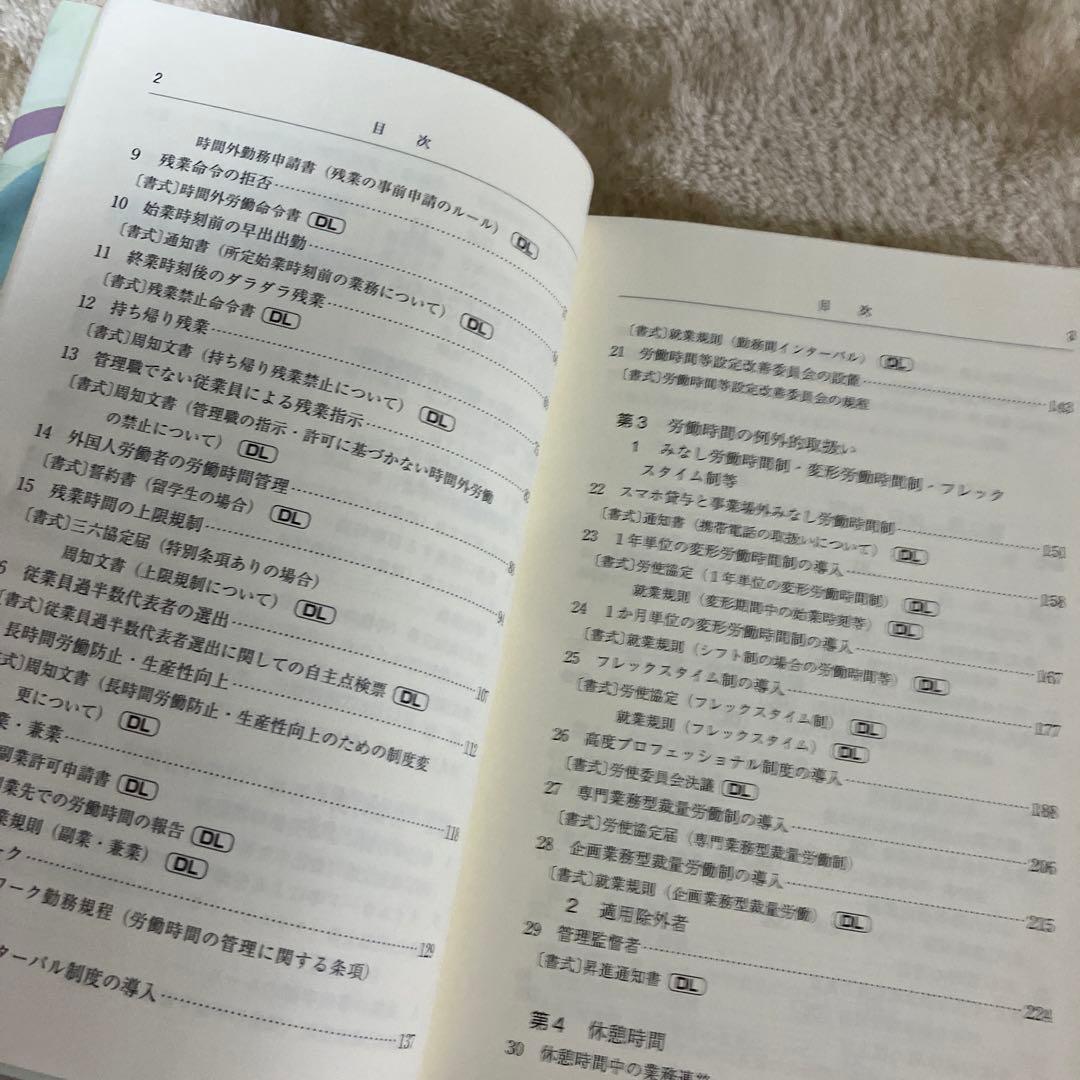 2
目 次
時間外勤務申請書（残業の事前申請のルール） DL
9 残業命令の拒否
〔書式〕時間外労働命令書 DL
10 始業時刻前の早出出勤
〔書式〕通知書（所定始業時刻前の業務について） DL
11 終業時刻後のダラダラ残業
〔書式〕残業禁止命令書 DL
12 持ち帰り残業
〔書式〕周知文書（持ち帰り残業禁止について） DL
13 管理職でない従業員による残業指示
〔書式〕周知文書（管理職の指示・許可に基づかない時間外労働
の禁止について） DL
14 外国人労働者の労働時間管理
〔書式〕誓約書（留学生の場合） DL
15 残業時間の上限規制
〔書式〕三六協定届（特別条項ありの場合）
周知文書（上限規制について） DL
6 従業員過半数代表者の選出
〔書式〕従業員過半数代表者選出に関しての自主点検票 DL
長時間労働防止・生産性向上 107
式〕周知文書（長時間労働防止・生産性向上のための制度変
更について） DL 112
業・兼業
副業許可申請書 DL
業先での労働時間の報告 DL 118
業規則（副業・兼業） DL
ーク
ワーク勤務規程（労働時間の管理に関する条項） 129
ターバル制度の導入 137
目 次
〔書式〕就業規則（勤務間インターバル） DL
21 労働時間等設定改善委員会の設置
〔書式〕労働時間等設定改善委員会の規程
第3 労働時間の例外的取扱い
1 みなし労働時間制・変形労働時間制・フレック
スタイム制等
22 スマホ貸与と事業場外みなし労働時間制 151
〔書式〕通知書（携帯電話の取扱いについて） DL
23 1年単位の変形労働時間制の導入 158
〔書式〕労使協定（1年単位の変形労働時間制） DL
就業規則（変形期間中の始業時刻等） DL
24 1か月単位の変形労働時間制の導入 167
〔書式〕就業規則（シフト制の場合の労働時間等） DL
25 フレックスタイム制の導入 177
〔書式〕労使協定（フレックスタイム制） DL
就業規則（フレックスタイム） DL
26 高度プロフェッショナル制度の導入 188
〔書式〕労使委員会決議 DL
27 専門業務型裁量労働制の導入 206
〔書式〕労使協定届（専門業務型裁量労働制）
28 企画業務型裁量労働制の導入 215
〔書式〕就業規則（企画業務型裁量労働） DL
2 適用除外者
29 管理監督者
〔書式〕昇進通知書 DL
第4 休憩時間
30 休憩時間中の業務連絡